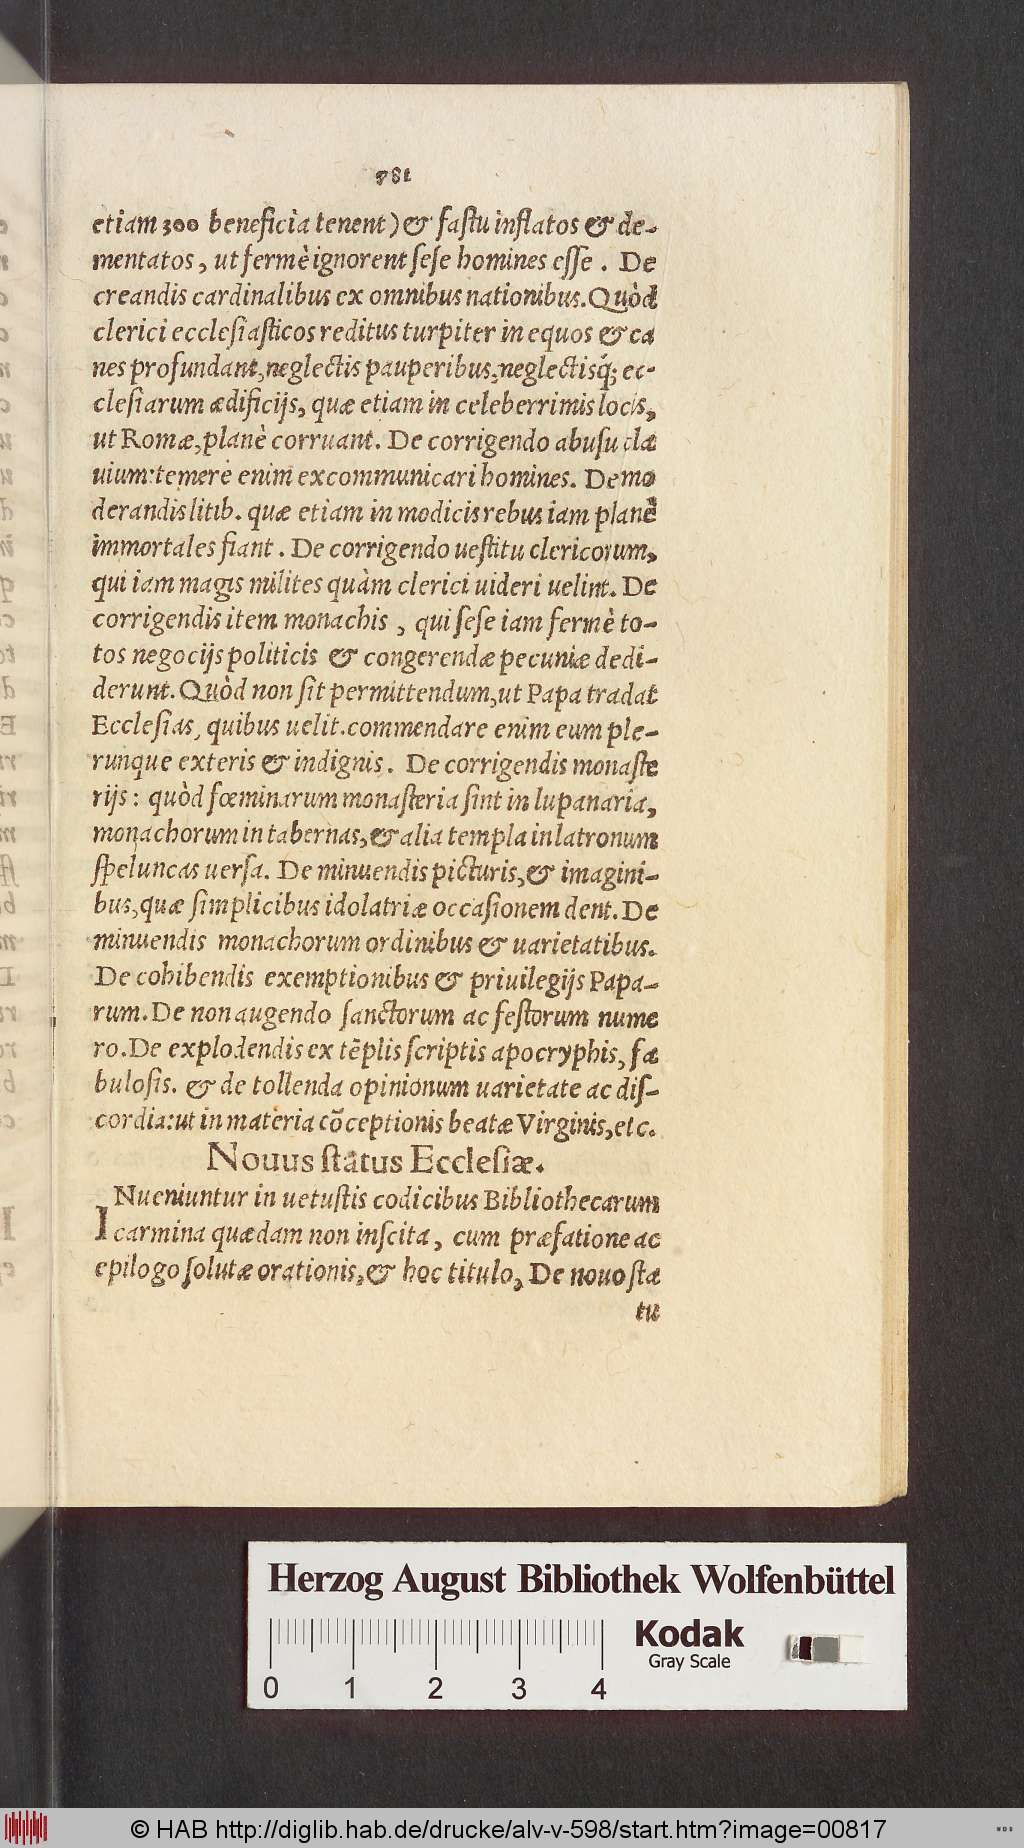 781
etiam 300 beneficia tenent) & fastu inflatos & de-
mentatos, ut fermè ignorent sese homines esse. De
creandis cardinalibus ex omnibus nationibus. Quòd
clerici ecclesiasticos reditus turpiter in equos & ca
nes profundant, neglectis pauperibus, neglectisq́; ec-
clesiarum ædificijs, quæ etiam in celeberrimis locis,
ut Romæ, planè corruant. De corrigendo abusu clæ
uium: temerè enim excommunicari homines. De mo
derandis litib. quæ etiam in modicis rebus iam planè
immortales fiant. De corrigendo uestitu clericorum,
qui iam magis milites quàm clerici uideri uelint. De
corrigendis item monachis, qui sese iam fermè to-
tos negocijs politicis & congerendæ pecuniæ dedi-
derunt. Quòd non sit permittendum, ut Papa tradat
Ecclesias, quibus uelit. commendare enim eum ple-
runque exteris & indignis. De corrigendis monaste
rijs: quòd fœminarum monasteria sint in lupanaria,
monachorum in tabernas, & alia templa in latronum
speluncas uersa. De minuendis picturis, & imagini-
bus, quæ simplicibus idolatriæ occasionem dent. De
minuendis monachorum ordinibus & uarietatibus.
De cohibendis exemptionibus & priuilegijs Papa-
rum. De non augendo sanctorum ac festorum nume
ro. De explodendis ex tēplis scriptis apocryphis, fa
bulosis. & de tollenda opinionum uarietate ac dis-
cordia: ut in materia cōceptionis beatæ Virginis, etc.
Nouus status Ecclesiæ.
INueniuntur in uetustis codicibus Bibliothecarum
carmina quædam non inscita, cum præfatione ac
epilogo solutæ orationis, & hoc titulo, De nouo sta
tu
Herzog August Bibliothek Wolfenbüttel
Kodak
Gray Scale
0 1 2 3 4
© HAB http://diglib.hab.de/drucke/alv-v-598/start.htm?image=00817